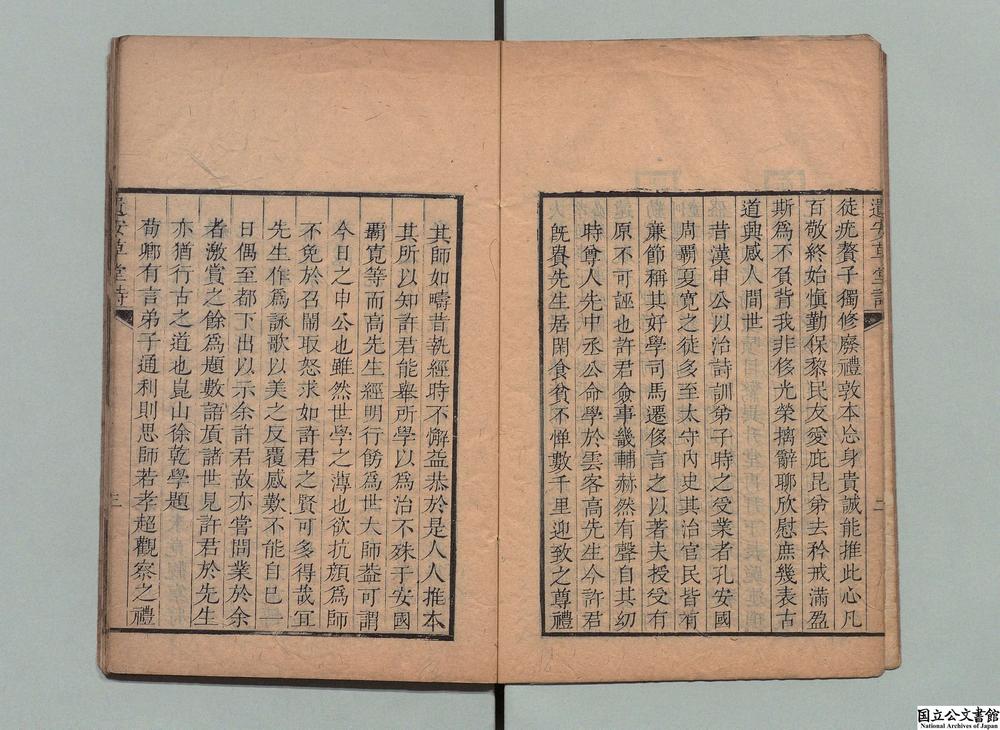 遺安草堂詩
徒疣贅子獨修廢禮敦本忘身貴誠能推此心凡
百敬終始愼勤保黎民友愛庇昆弟去矜戒滿盈
斯爲不負昔我非侈光榮摛辭聊欣慰庶幾表古
道興感人間世
昔漢申公以治詩訓弟子時之受業者孔安國
周霸夏寛之徒多至太守內史其治官民皆有
亷節稱其好學司馬遷侈言之以著夫授受有
原不可誣也許君僉事畿輔赫然有聲自其幼
時尊人先中丞公命學於雲客高先生今許君
旣貴先生居閑食貧不惮數千里迎致之尊禮
二
其師如疇昔執經時不懈益恭於是人人推本
其所以知許君能舉所學以爲治不殊于安國
霸寛等而高先生經明行飭爲世大師葢可謂
今日之申公也雖然世學之薄也欲抗顔爲師
不免於召鬧取怒求如許君之賢可多得哉宐
先生作爲詠歌以美之反覆感歎不能自已一
日偶至都下出以示余許君故亦嘗問業於余
者激賞之餘爲題數語頂諸世見許君於先生
亦猶行古之道也崑山徐乾學題
荀卿有言弟子通利則思師若孝超觀察之禮
遺安草堂詩
三
国立公文書館
National Archives of Japan